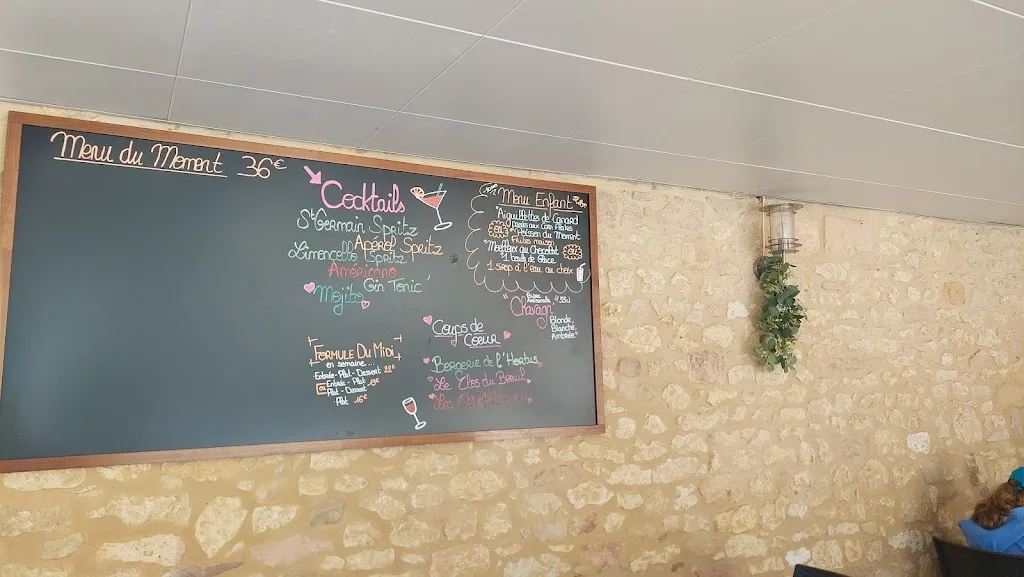 Menu du Moment 36€
Cocktails
St Germain Spritz
Apérol Spritz
Limoncello Spritz
Américano
Gin Tonic
Mojito
FORMULE DU MIDI
en semaine...
Entrée - Plat - Dessert 22€
ou Entrée - Plat
Plat - Dessert 19€
Plat 16€
Coups de
Coeur
Bergerie de l'Hortus
Le Clos du
Les
Menu Enfant
Aiguillettes de Canard
aux Corn Flakes
ou Poisson du Moment
Frites maison
Moelleux au Chocolat
ou
1 boule de Glace
1 sirop à l'eau au choix
Bière
Artisanale
33cl
Blonde,
Blanche,
Ambrée"